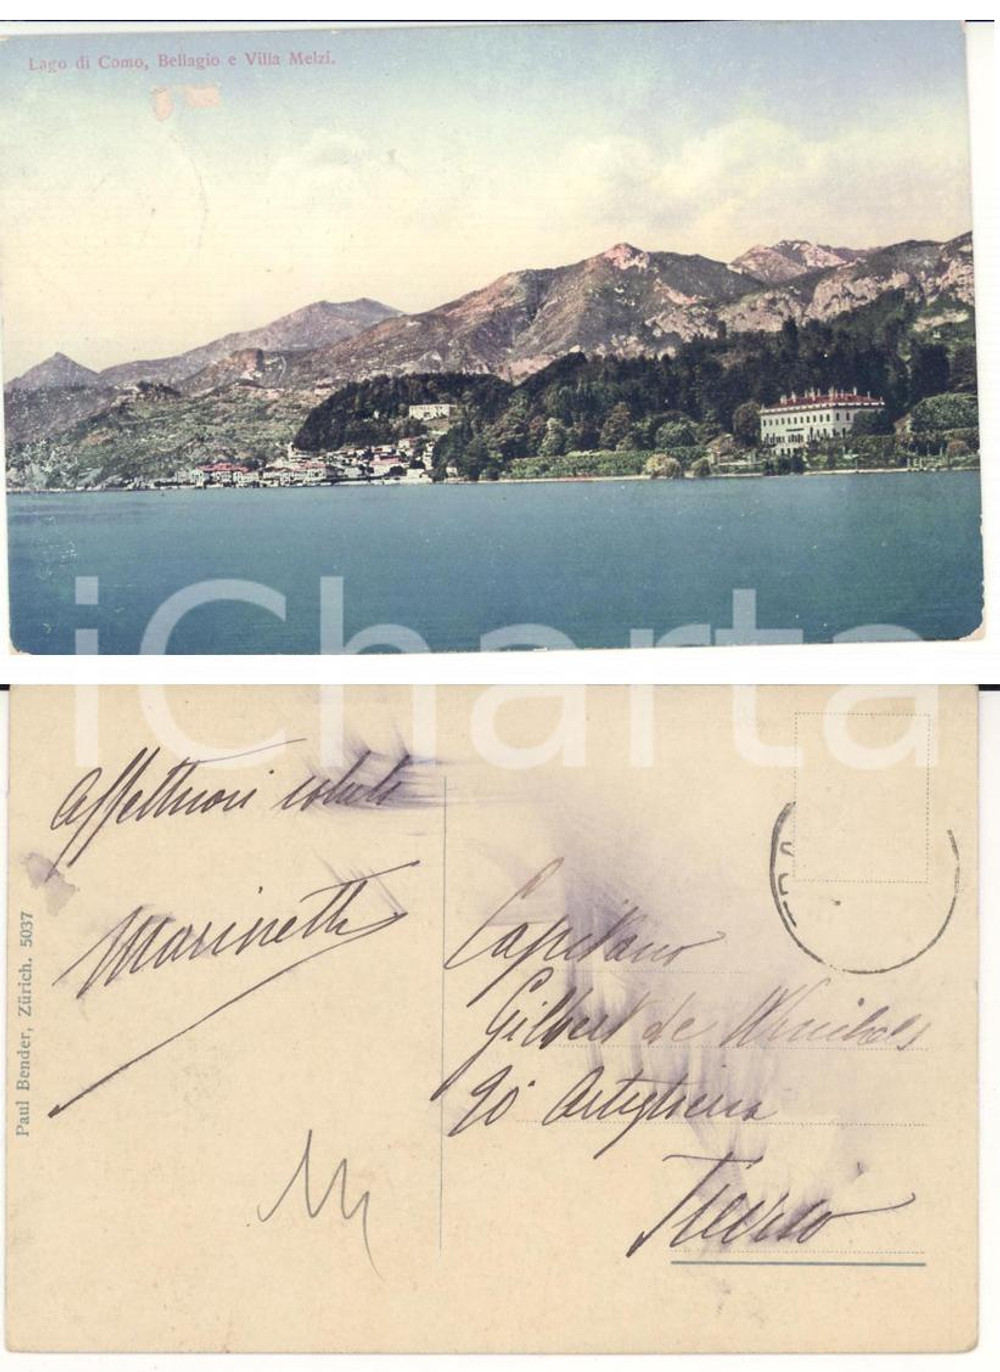 Lago di Como, Bellagio e Villa Melzi.
iCharta
Affettuosi saluti
Marinetti
Capitano
Gilbert de
20° Artiglieria
Treviso
Paul Bender, Zürich. 5037